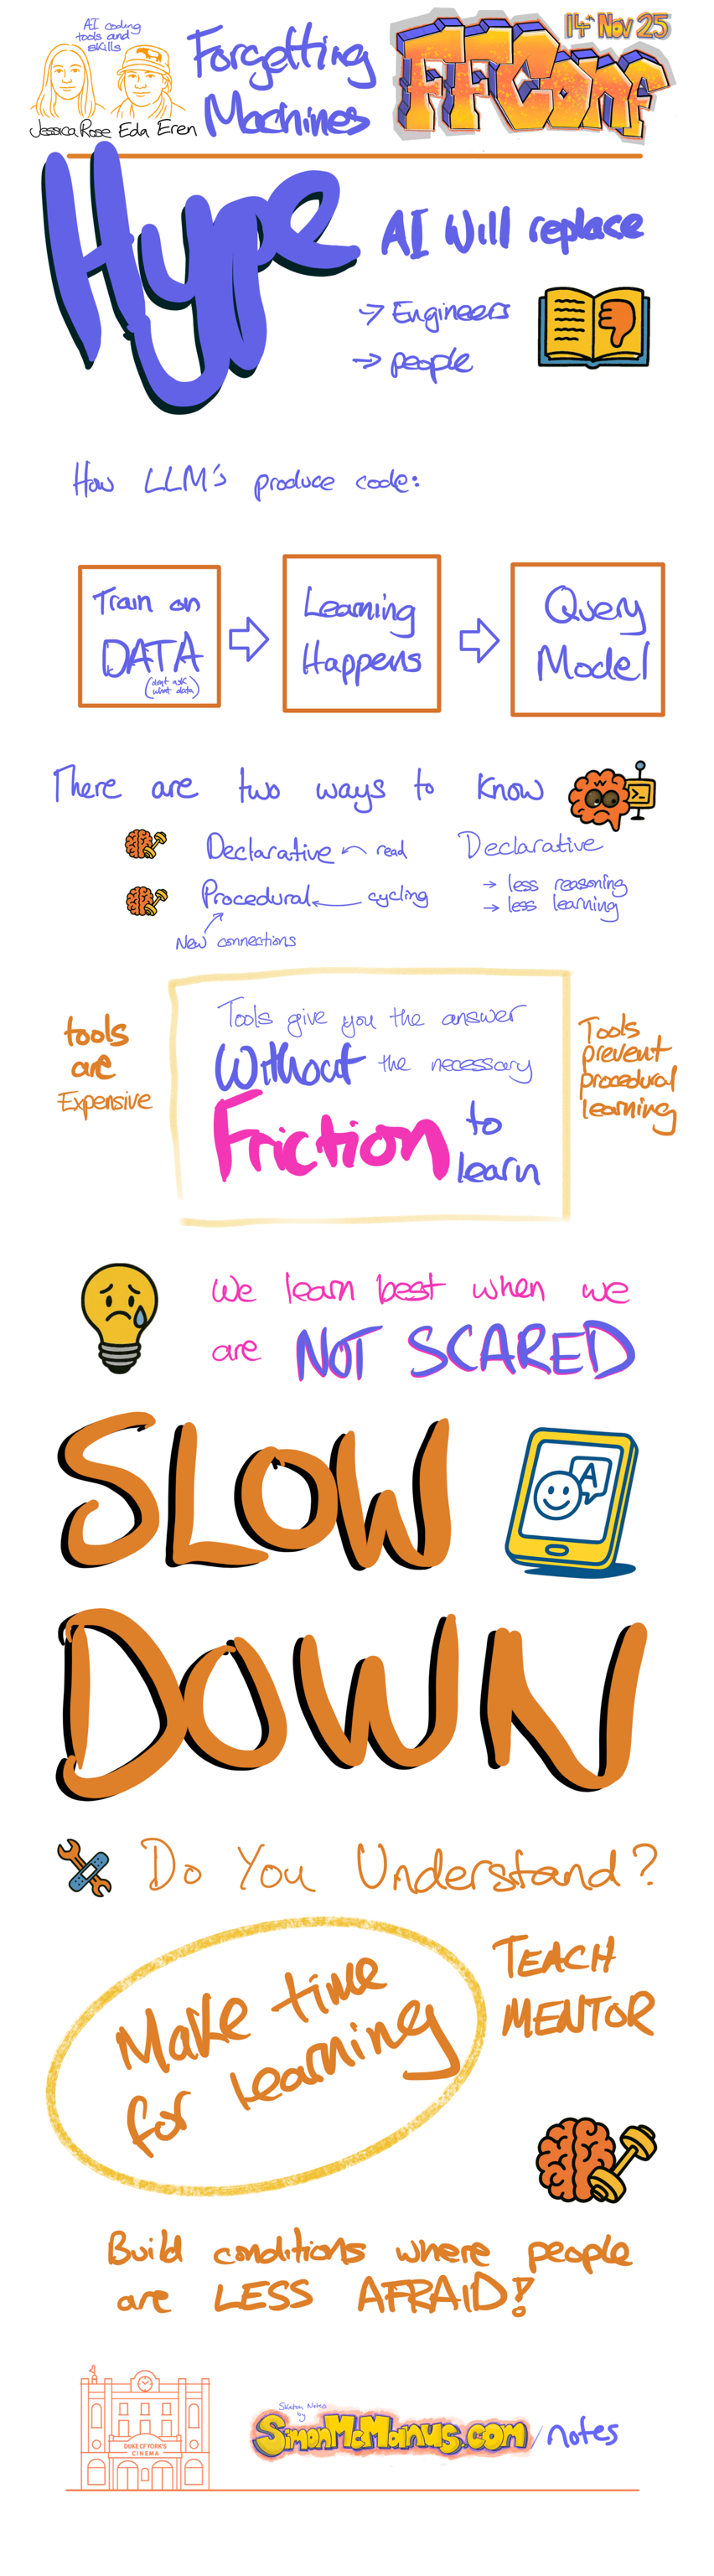 AI coding
tools and
skills
Jessica Rose Eda Eren
Forgetting
Machines
14th Nov 25
FFConf
Hype
AI Will replace
→ Engineers
→ people
How LLM's produce code:
Train on
DATA
(dont ask
what data)
Learning
Happens
Query
Model
There are two ways to know
Declarative ← read
Procedural ← cycling
New connections
Declarative
→ less reasoning
→ less learning
tools
are
Expensive
Tools give you the answer
Without the necessary
Friction to
learn
Tools
prevent
procedural
learning
We learn best when we
are NOT SCARED
SLOW
A
DOWN
Do You Understand?
Make time
for learning
TEACH
MENTOR
Build conditions where people
are LESS AFRAID!
DUKE OF YORK'S
CINEMA
Sketch Notes
by
SimonMcManus.com/notes